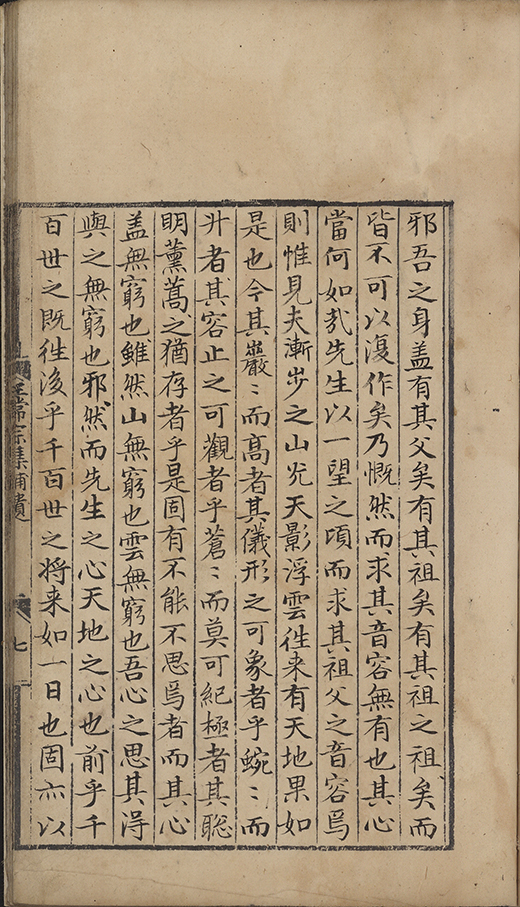 邪吾之身盖有其父矣有其祖矣有其祖之祖矣而
皆不可以復作矣乃慨然而求其音容無有也其心
當何如哉先生以一望之頃而求其祖父之音容焉
則惟見夫漸步之山光天影浮雲徃来有天地果如
是也今其巖〻而髙者其儀形之可象者乎蜿〻而
升者其容止之可觀者乎蒼〻而莫可紀極者其聡
明薰蒿之猶存者乎是固有不能不思焉者而其心
盖無窮也雖然山無窮也雲無窮也吾心之思其淂
與之無窮也邪然而先生之心天地之心也前乎千
百世之既徃後乎千百世之将来如一日也固亦以
王常宗集補遺
七